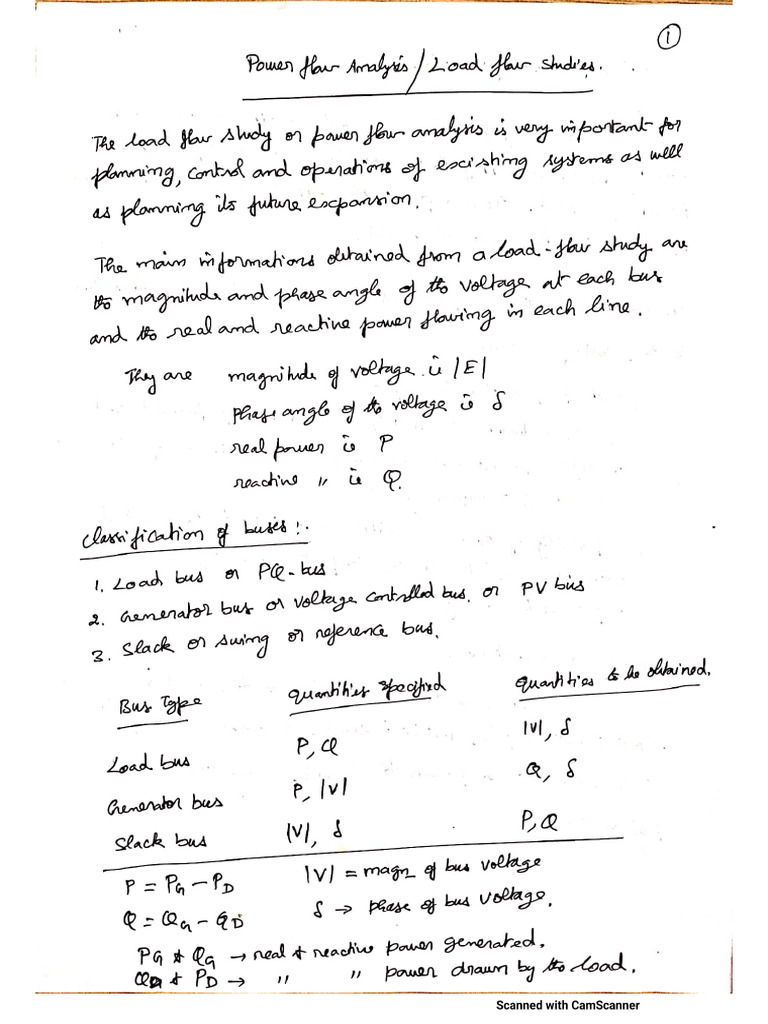 1
Power flow Analysis / Load flow studies.
The load flow study or power flow analysis is very important for
planning, control and operations of excisting systems as well
as planning its future expansion.
The main informations obtained from a load-flow study are
the magnitude and phase angle of the voltage at each bus
and the real and reactive power flowing in each line.
They are magnitude of voltage ie |E|
phase angle of the voltage ie δ
real power ie P
reactive " ie Q.
Classification of buses :-
1. Load bus or PQ-bus
2. Generator bus or voltage controlled bus. or PV bus
3. Slack or swing or reference bus.
Bus Type Quantities specified Quantities to be obtained.
Load bus P, Q |V|, δ
Generator bus P, |V| Q, δ
Slack bus |V|, δ P, Q
P = PG - PD |V| = magn. of bus voltage
Q = QG - QD δ → phase of bus voltage.
PG & QG → real & reactive power generated.
QD & PD → " " power drawn by the load.
Scanned with CamScanner